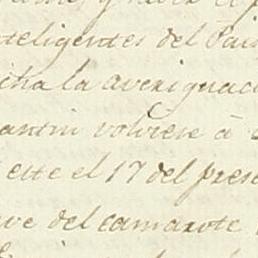 nteligentes del Pai
cha la averiguac
antin volviese à
este el 17 del prese
ve del camarote